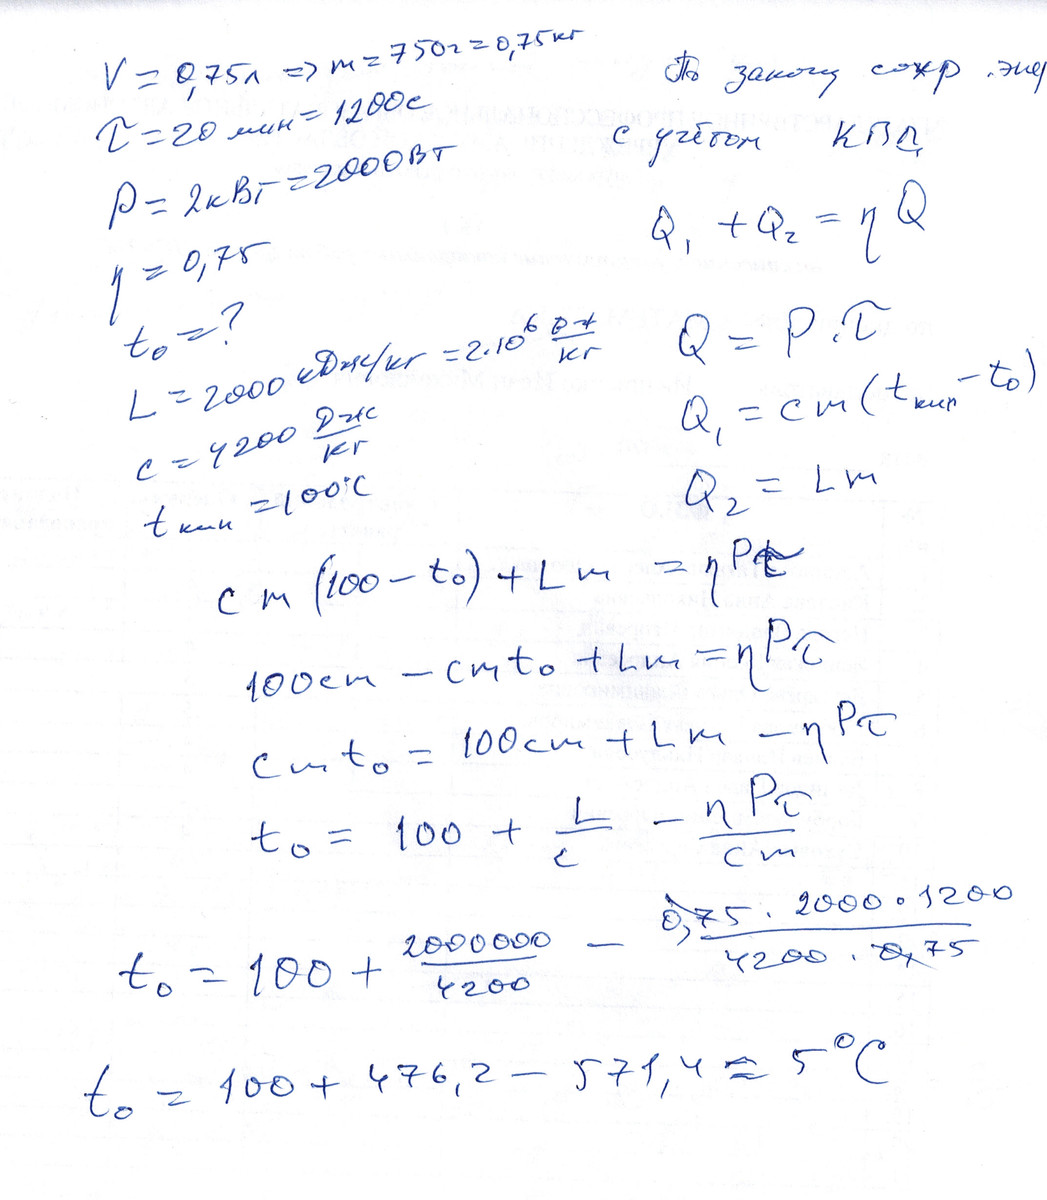 V = 0,75л => m = 750г = 0,75кг
τ = 20 мин = 1200с
P = 2кВт = 2000Вт
η = 0,75
t₀ = ?
L = 2000 кДж/кг = 2·10⁶ Дж/кг
c = 4200 Дж/кг
t кип = 100°C
По закону сохр. энер
с учётом КПД
Q₁ + Q₂ = η Q
Q = P·τ
Q₁ = cm(t кип - t₀)
Q₂ = Lm
cm(100 - t₀) + Lm = ηPτ
100cm - cmt₀ + Lm = ηPτ
cmt₀ = 100cm + Lm - ηPτ
t₀ = 100 + L/c - ηPτ/cm
t₀ = 100 + 2000000/4200 - 0,75·2000·1200/4200·0,75
t₀ = 100 + 476,2 - 571,4 ≈ 5°C